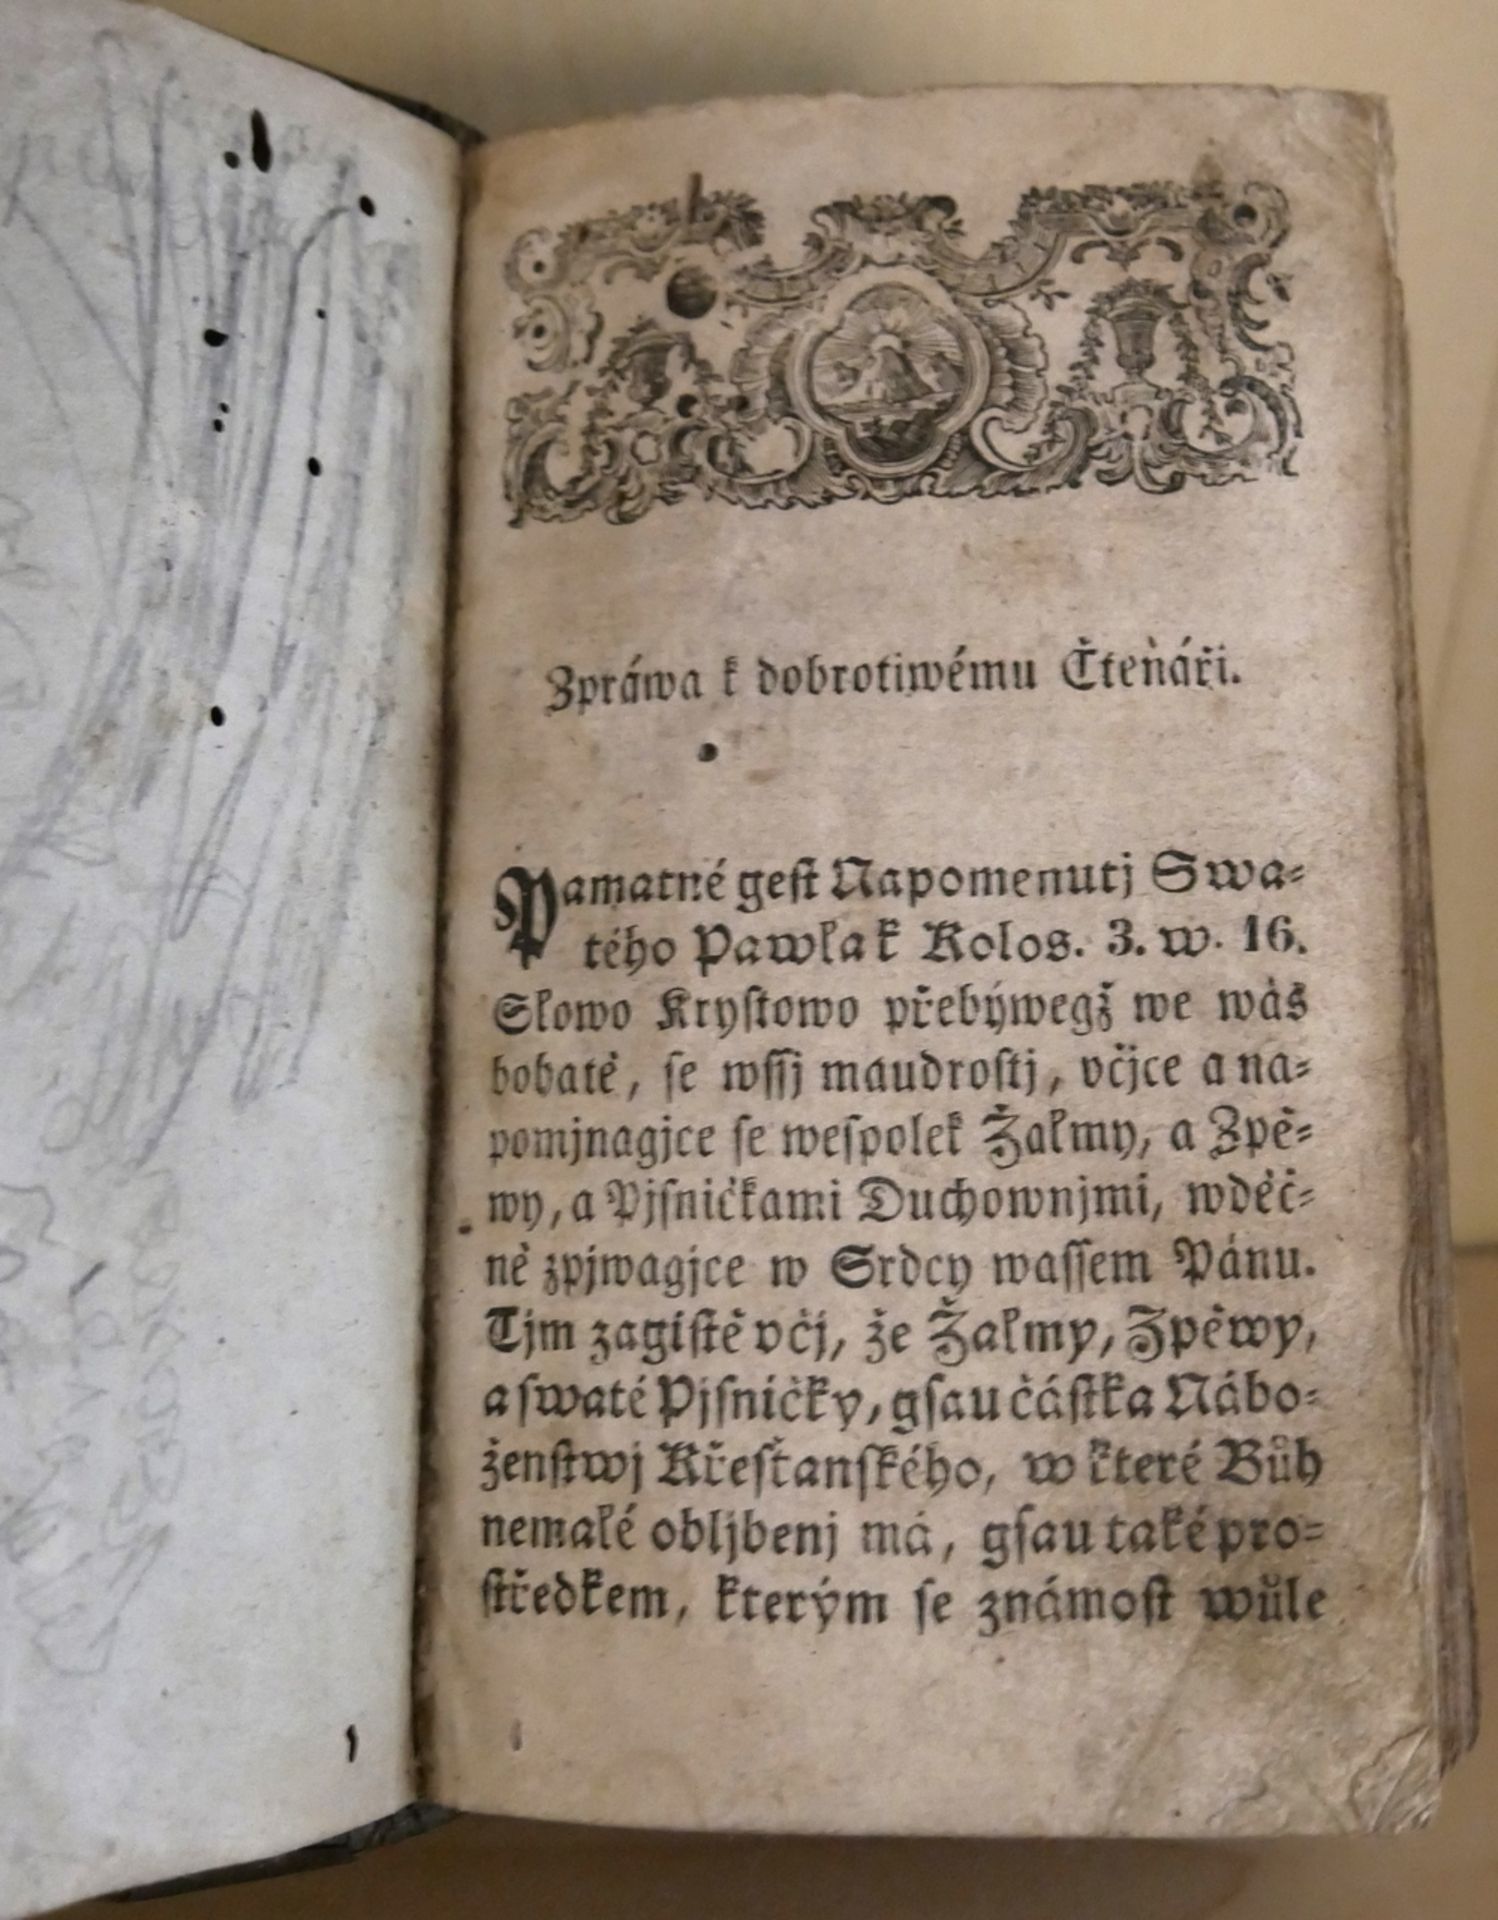 Zpráwa k dobrotiwému Čtenáři.
Pamatné gest Napomenutj Swa-
tého Pawla k Kolos. 3. w. 16.
Slowo Krystowo přebýwegž we wás
bohatě, se wssj maudrostj, včjce a na-
pomjnagjce se wespolek Žalmy, a Zpě-
wy, a Pjsničkami Duchownjmi, wděč-
ně zpjwagjce w Srdcy wassem Pánu.
Tjm zagistě včj, že Žalmy, Zpěwy,
a swaté Pjsničky, gsau částka Nábo-
ženstwj Křesťanského, w které Bůh
nemalé obljbenj má, gsau také pro-
středkem, kterým se známost wůle